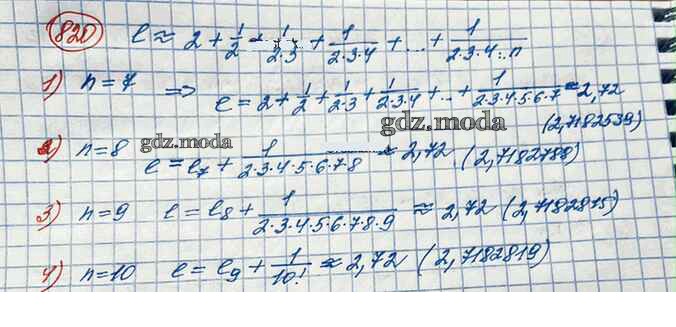 820 e ≈ 2 + 1/2 + 1/2·3 + 1/2·3·4 + ... + 1/2·3·4...n
1) n = 7 => e = 2 + 1/2 + 1/2·3 + 1/2·3·4 + ... + 1/2·3·4·5·6·7 ≈ 2,72
(2,7182539)
gdz.moda
2) n = 8 gdz.moda e = e₇ + 1/2·3·4·5·6·7·8 ≈ 2,72 (2,7182788)
3) n = 9 e = e₈ + 1/2·3·4·5·6·7·8·9 ≈ 2,72 (2,7182815)
4) n = 10 e = e₉ + 1/10! ≈ 2,72 (2,7182819)